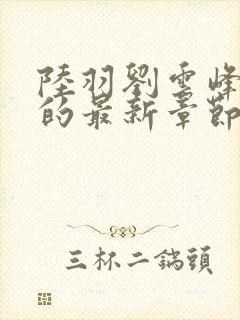 陸羽劉雲峰
的最新章節
三杯二鍋頭